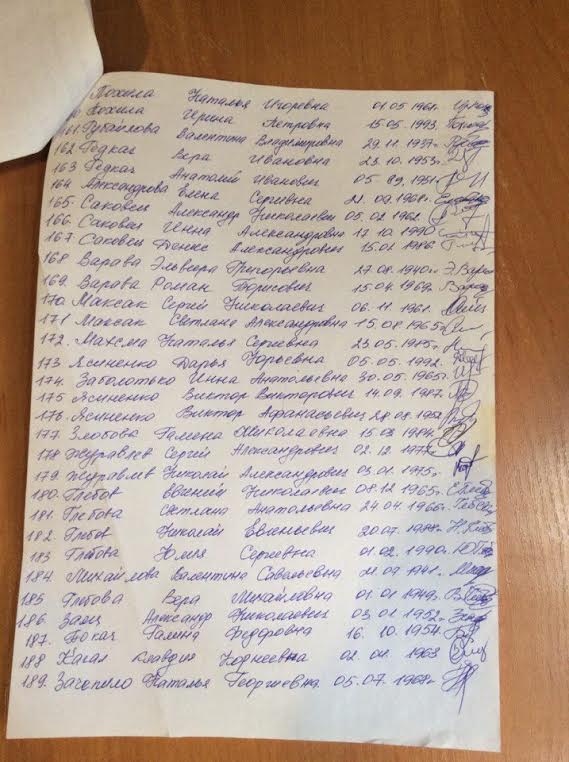 Похила Наталья Игоревна 01.05 1961г.
Похила Ирина Петровна 15.05 1993
161. Губайлова Валентина Владимировна 29.11.1937г.
162. Гедкач Вера Ивановна 23.10.1953г.
163 Гедкач Анатолий Иванович 05.09.1951г.
164 Александрова Елена Сергеевна 21.09.1968г.
165. Саковец Александр Николаевич 05.02 1962
166. Саковец Инна Александровна 17.10 1990
167. Саковец Денис Александрович 15.02 1986
168 Варава Эльвира Григорьевна 27.08.1940г. Э.Вара
169. Варава Роман Борисович 15.04 1969г.
170. Максак Сергей Николаевич 06.11 1961
171 Максак Светлана Александровна 15.08 1965г.
172. Наталья Сергеевна 23.05
173 Ясиненко Дарья Юрьевна 05.05 1992
174. Заболотько Инна Анатольевна 30.05 1965г.
175 Ясиненко Виктор Викторович 14.09.1987г.
176. Ясиненко Виктор Афанасьевич 28.08
177. Злобова Николаевна 15.03 1984г.
178. Журавлев Сергей Александрович 02.12.
179. Журавлев Николай Александрович 03.01
180. Глебов Евгений Николаевич 08.12 1965г.
181. Глебова Светлана Анатольевна 24.04 1966г.
182. Глебов Николай Евгеньевич 20.07 1988г.
183 Глебова Юлия Сергеевна 01.02 1990г.
184. Михайлова Валентина Савельевна 21.09 1941г.
185 Глебова Вера Михайловна 01.01 1949г.
186. Заяц Александр Николаевич 03.01 1952.
187. Бокач Галина Федоровна 16. 10. 1954г.
188 Кагал Клавдия Корнеевна 02. 1963
189. Зачепило Наталья Георгиевна. 05.07. 1968г.